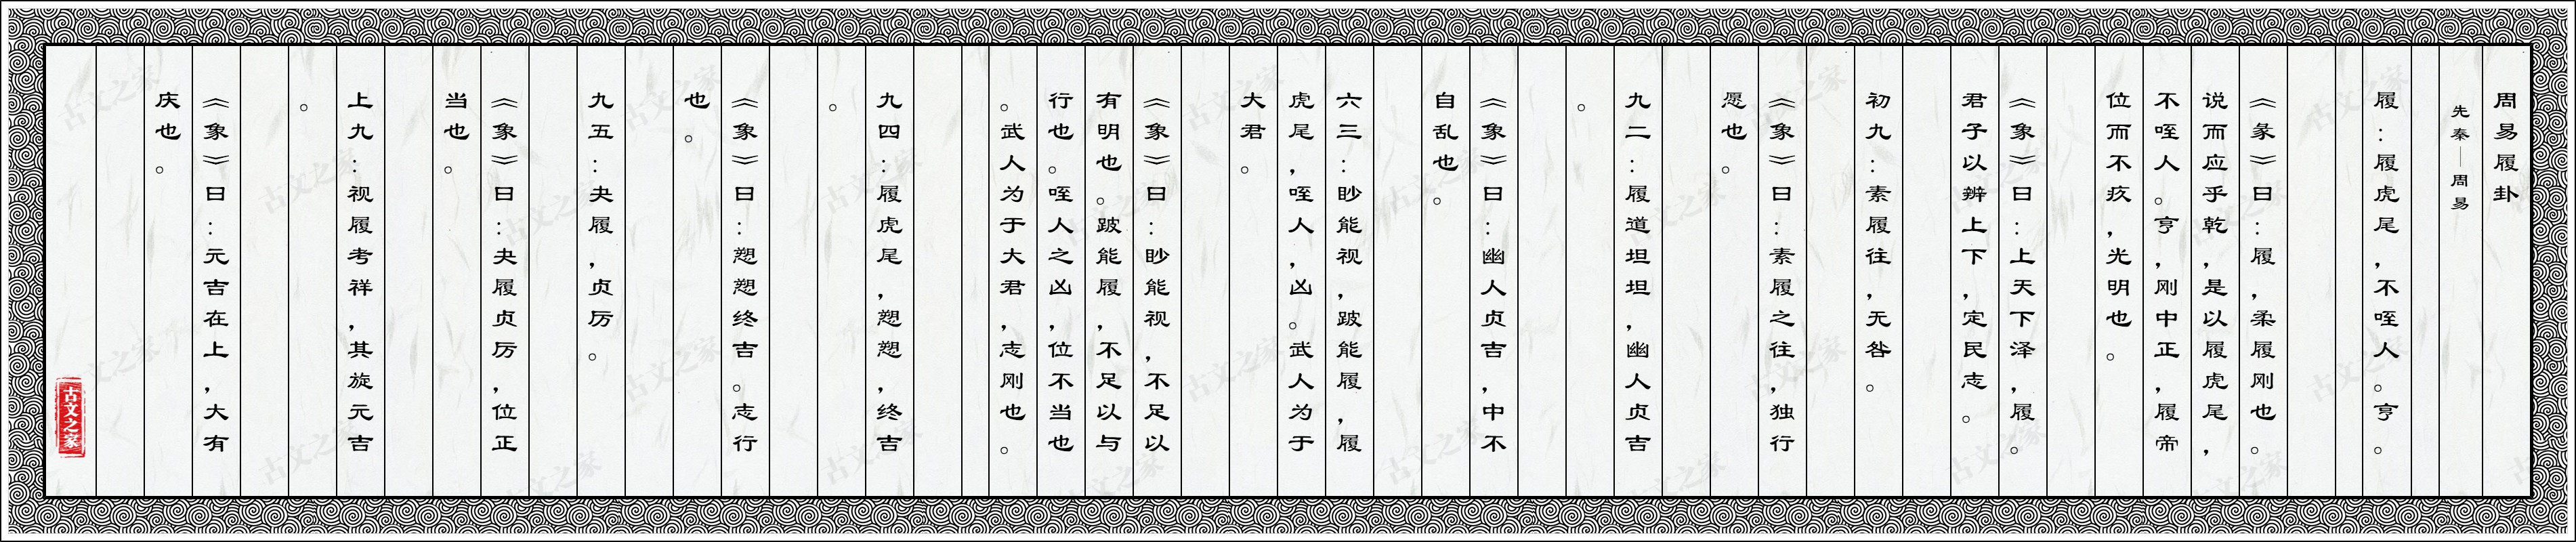 周易履卦
先秦—周易
履：履虎尾，不咥人。亨。
《彖》曰：履，柔履刚也。
说而应乎乾，是以履虎尾，
不咥人。亨，刚中正，履帝
位而不疚，光明也。
《象》曰：上天下泽，履。
君子以辨上下，定民志。
初九：素履往，无咎。
《象》曰：素履之往，独行
愿也。
九二：履道坦坦，幽人贞吉
。
《象》曰：幽人贞吉，中不
自乱也。
六三：眇能视，跛能履，履
虎尾，咥人，凶。武人为于
大君。
《象》曰：眇能视，不足以
有明也。跛能履，不足以与
行也。咥人之凶，位不当也
。武人为于大君，志刚也。
九四：履虎尾，愬愬，终吉
。
《象》曰：愬愬终吉。志行
也。
九五：夬履，贞厉。
《象》曰：夬履贞厉，位正
当也。
上九：视履考祥，其旋元吉
。
《象》曰：元吉在上，大有
庆也。
古文之家